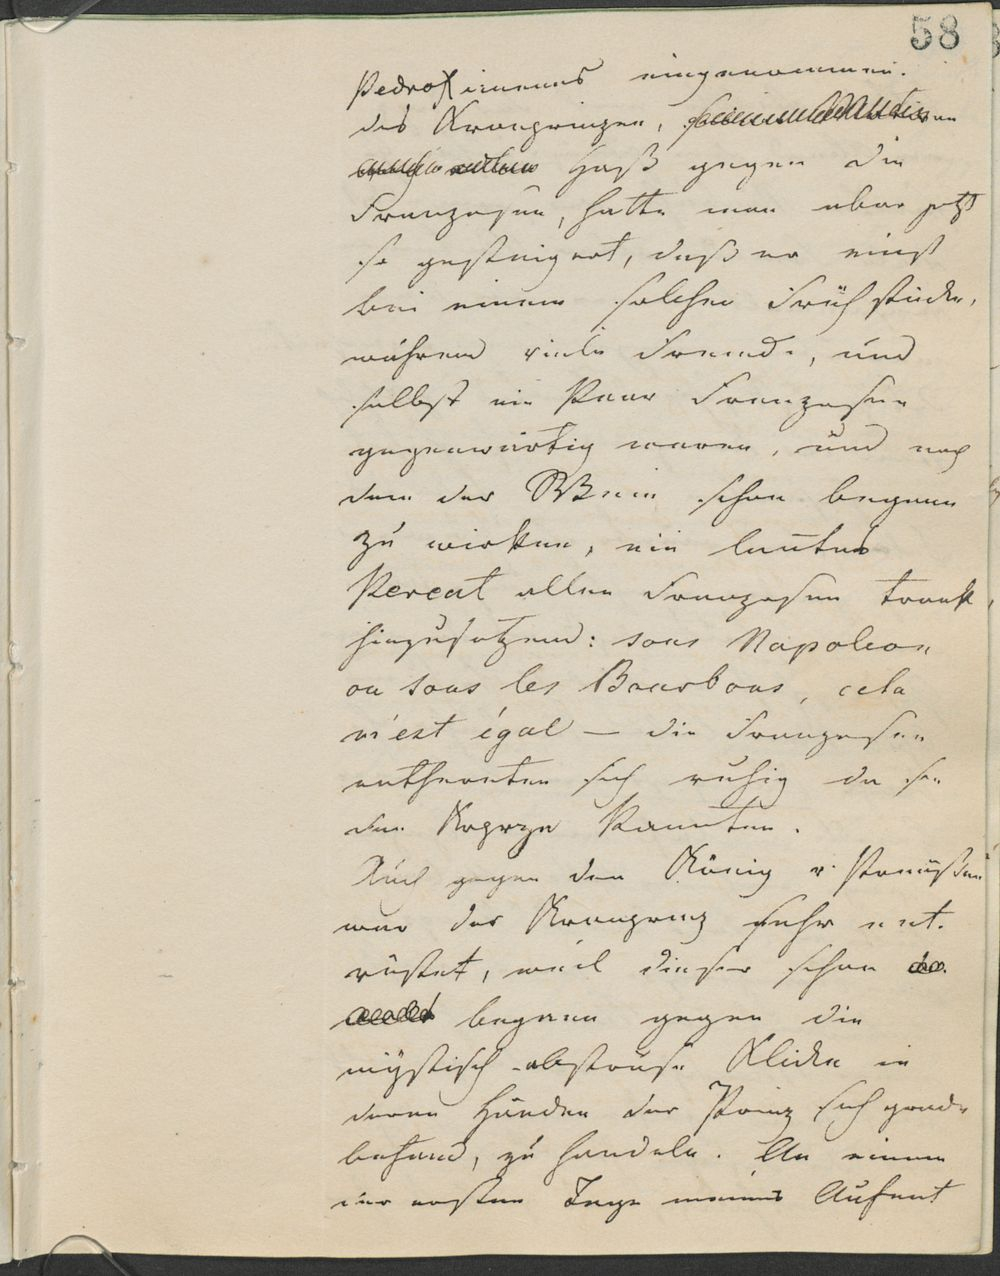 58
Pedro Ximenes eingenommen.
des Kronprinzen,
Haß gegen die
Franzosen, hatte man aber jetzt
so gesteigert, daß er einst
bei einem solchen Frühstücke,
während viele Fremde, und
selbst ein Paar Franzosen
gegenwärtig waren, und nach
dem der Wein schon begann
zu wirken, ein lautes
Pereat allen Franzosen trank,
hinzusetzend: sous Napoleon
ou sous les Bourbons, cela
m'est égal — die Franzosen
entfernten sich ruhig da sie
den kannten.
Auch gegen den König v. Preußen
war der Kronprinz sehr ent-
rüstet, weil dieser schon
begann gegen die
mystisch-abstruse Klicke in
deren Händen der Prinz sich grade
befand, zu handeln. An einem
der ersten Tage meines Aufent